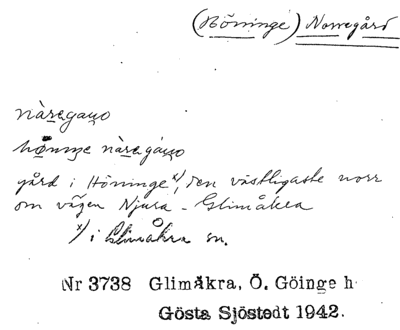 (Höninge) Norregård
nàregaṷo
hönıŋe nàregáṷo
gård i Höninge x), den västligaste norr
om vägen Njura - Glimåkra
x) i Glimåkra sn.
Nr 3738 Glimåkra, Ö. Göinge h
Gösta Sjöstedt 1942.